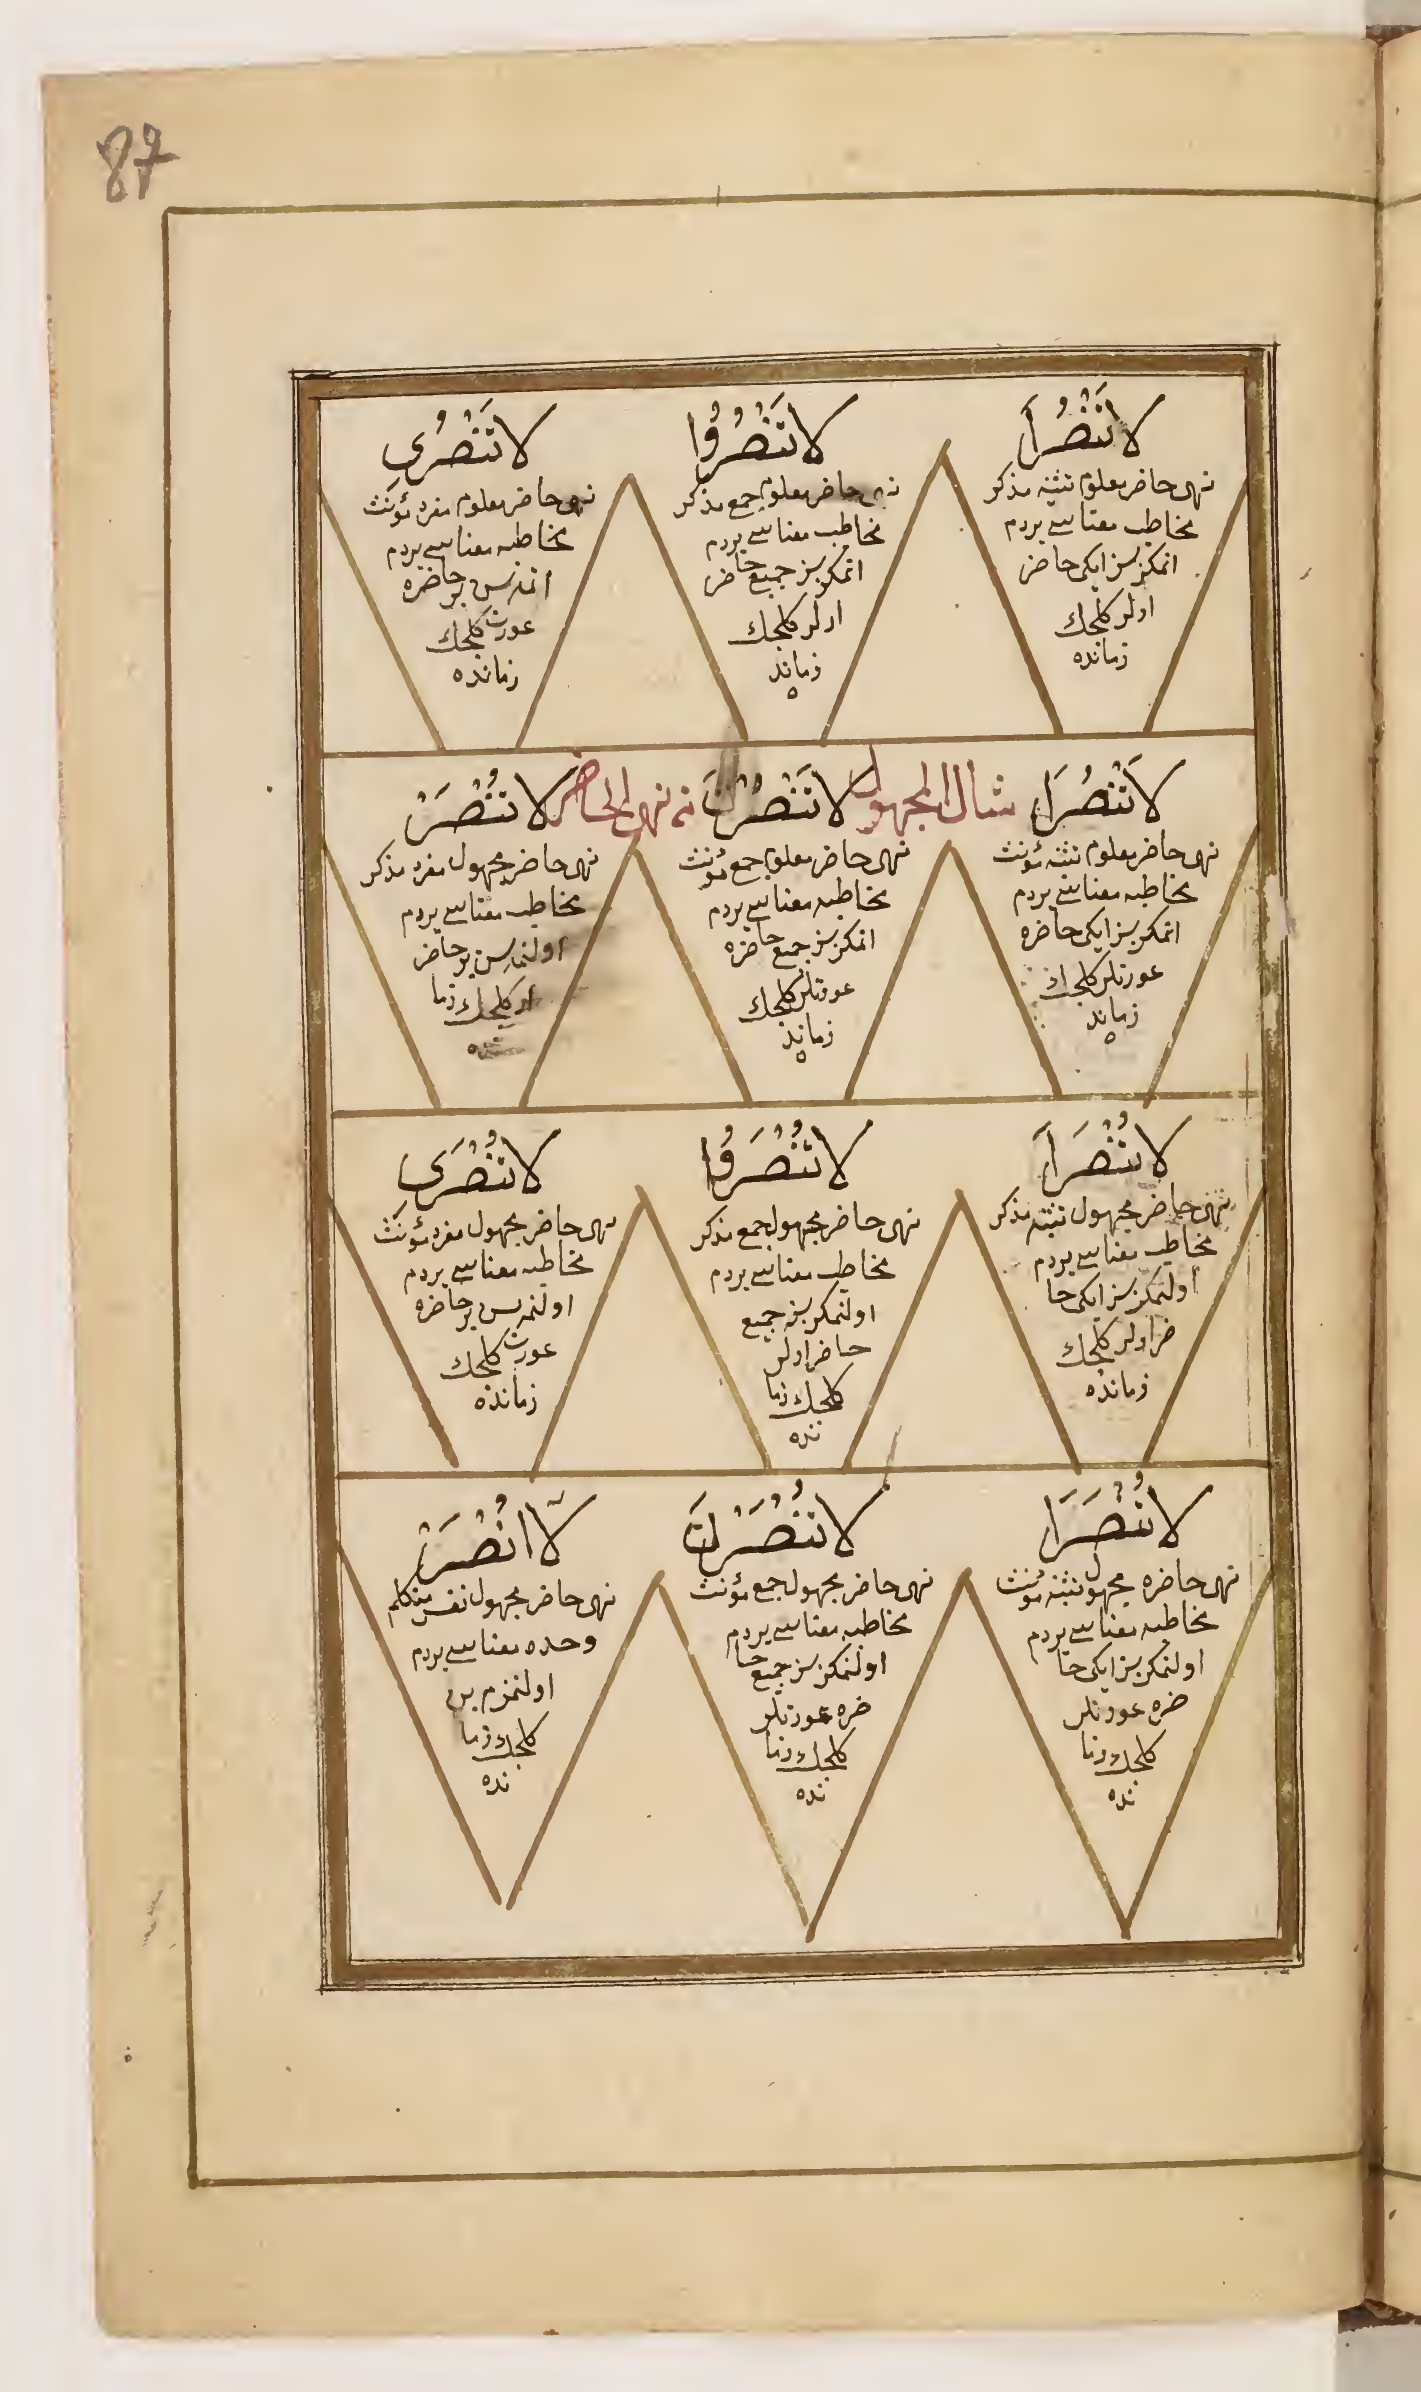 87
لَا تَنْصُرَا
نهی حاضر معلوم تثنیه مذکر
مخاطب معناسی بردم
اتمکز سز ایکی حاضر
ارلر کلجك
زمانده
لَا تَنْصُرُوا
نهی حاضر معلوم جمع مذکر
مخاطب معناسی بردم
اتمکز سز جمیع حاضر
ارلر کلجك
زمانده
لَا تَنْصُرِی
نهی حاضر معلوم مفرد مؤنث
مخاطبه معناسی بردم
اتمه سن بر حاضره
عورت کلجك
زمانده
لَا تَنْصُرَا
نهی حاضر معلوم تثنیه مؤنث
مخاطبه معناسی بردم
اتمکز سز ایکی حاضره
عورتلر کلجك
زمانده
لَا تَنْصُرْنَ
نهی حاضر معلوم جمع مؤنث
مخاطبه معناسی بردم
اتمکز سز جمع حاضره
عورتلر کلجك
زمانده
مثال المجهول من نهی الحاضر
لَا تُنْصَرْ
نهی حاضر مجهول مفرد مذکر
مخاطب معناسی بردم
اولنماسن بر حاضر
ار کلجك زما
نده
لَا تُنْصَرَا
نهی حاضر مجهول تثنیه مذکر
مخاطب معناسی بردم
اولنمکز سز ایکی حا
ضر ارلر کلجك
زمانده
لَا تُنْصَرُوا
نهی حاضر مجهول جمع مذکر
مخاطب معناسی بردم
اولنمکز سز جمیع
حاضر ارلر
کلجك زما
نده
لَا تُنْصَرِی
نهی حاضر مجهول مفرد مؤنث
مخاطبه معناسی بردم
اولنمه سن بر حاضره
عورت کلجك
زمانده
لَا تُنْصَرَا
نهی حاضره مجهول تثنیه مؤنث
مخاطبه معناسی بردم
اولنمکز سز ایکی حا
ضره عورتلر
کلجك زما
نده
لَا تُنْصَرْنَ
نهی حاضر مجهول جمع مؤنث
مخاطبه معناسی بردم
اولنمکز سز جمیع حا
ضره عورتلر
کلجك زما
نده
لَا اُنْصَرْ
نهی حاضر مجهول نفس متکلم
وحده معناسی بردم
اولنمزم بن
کلجك زما
نده